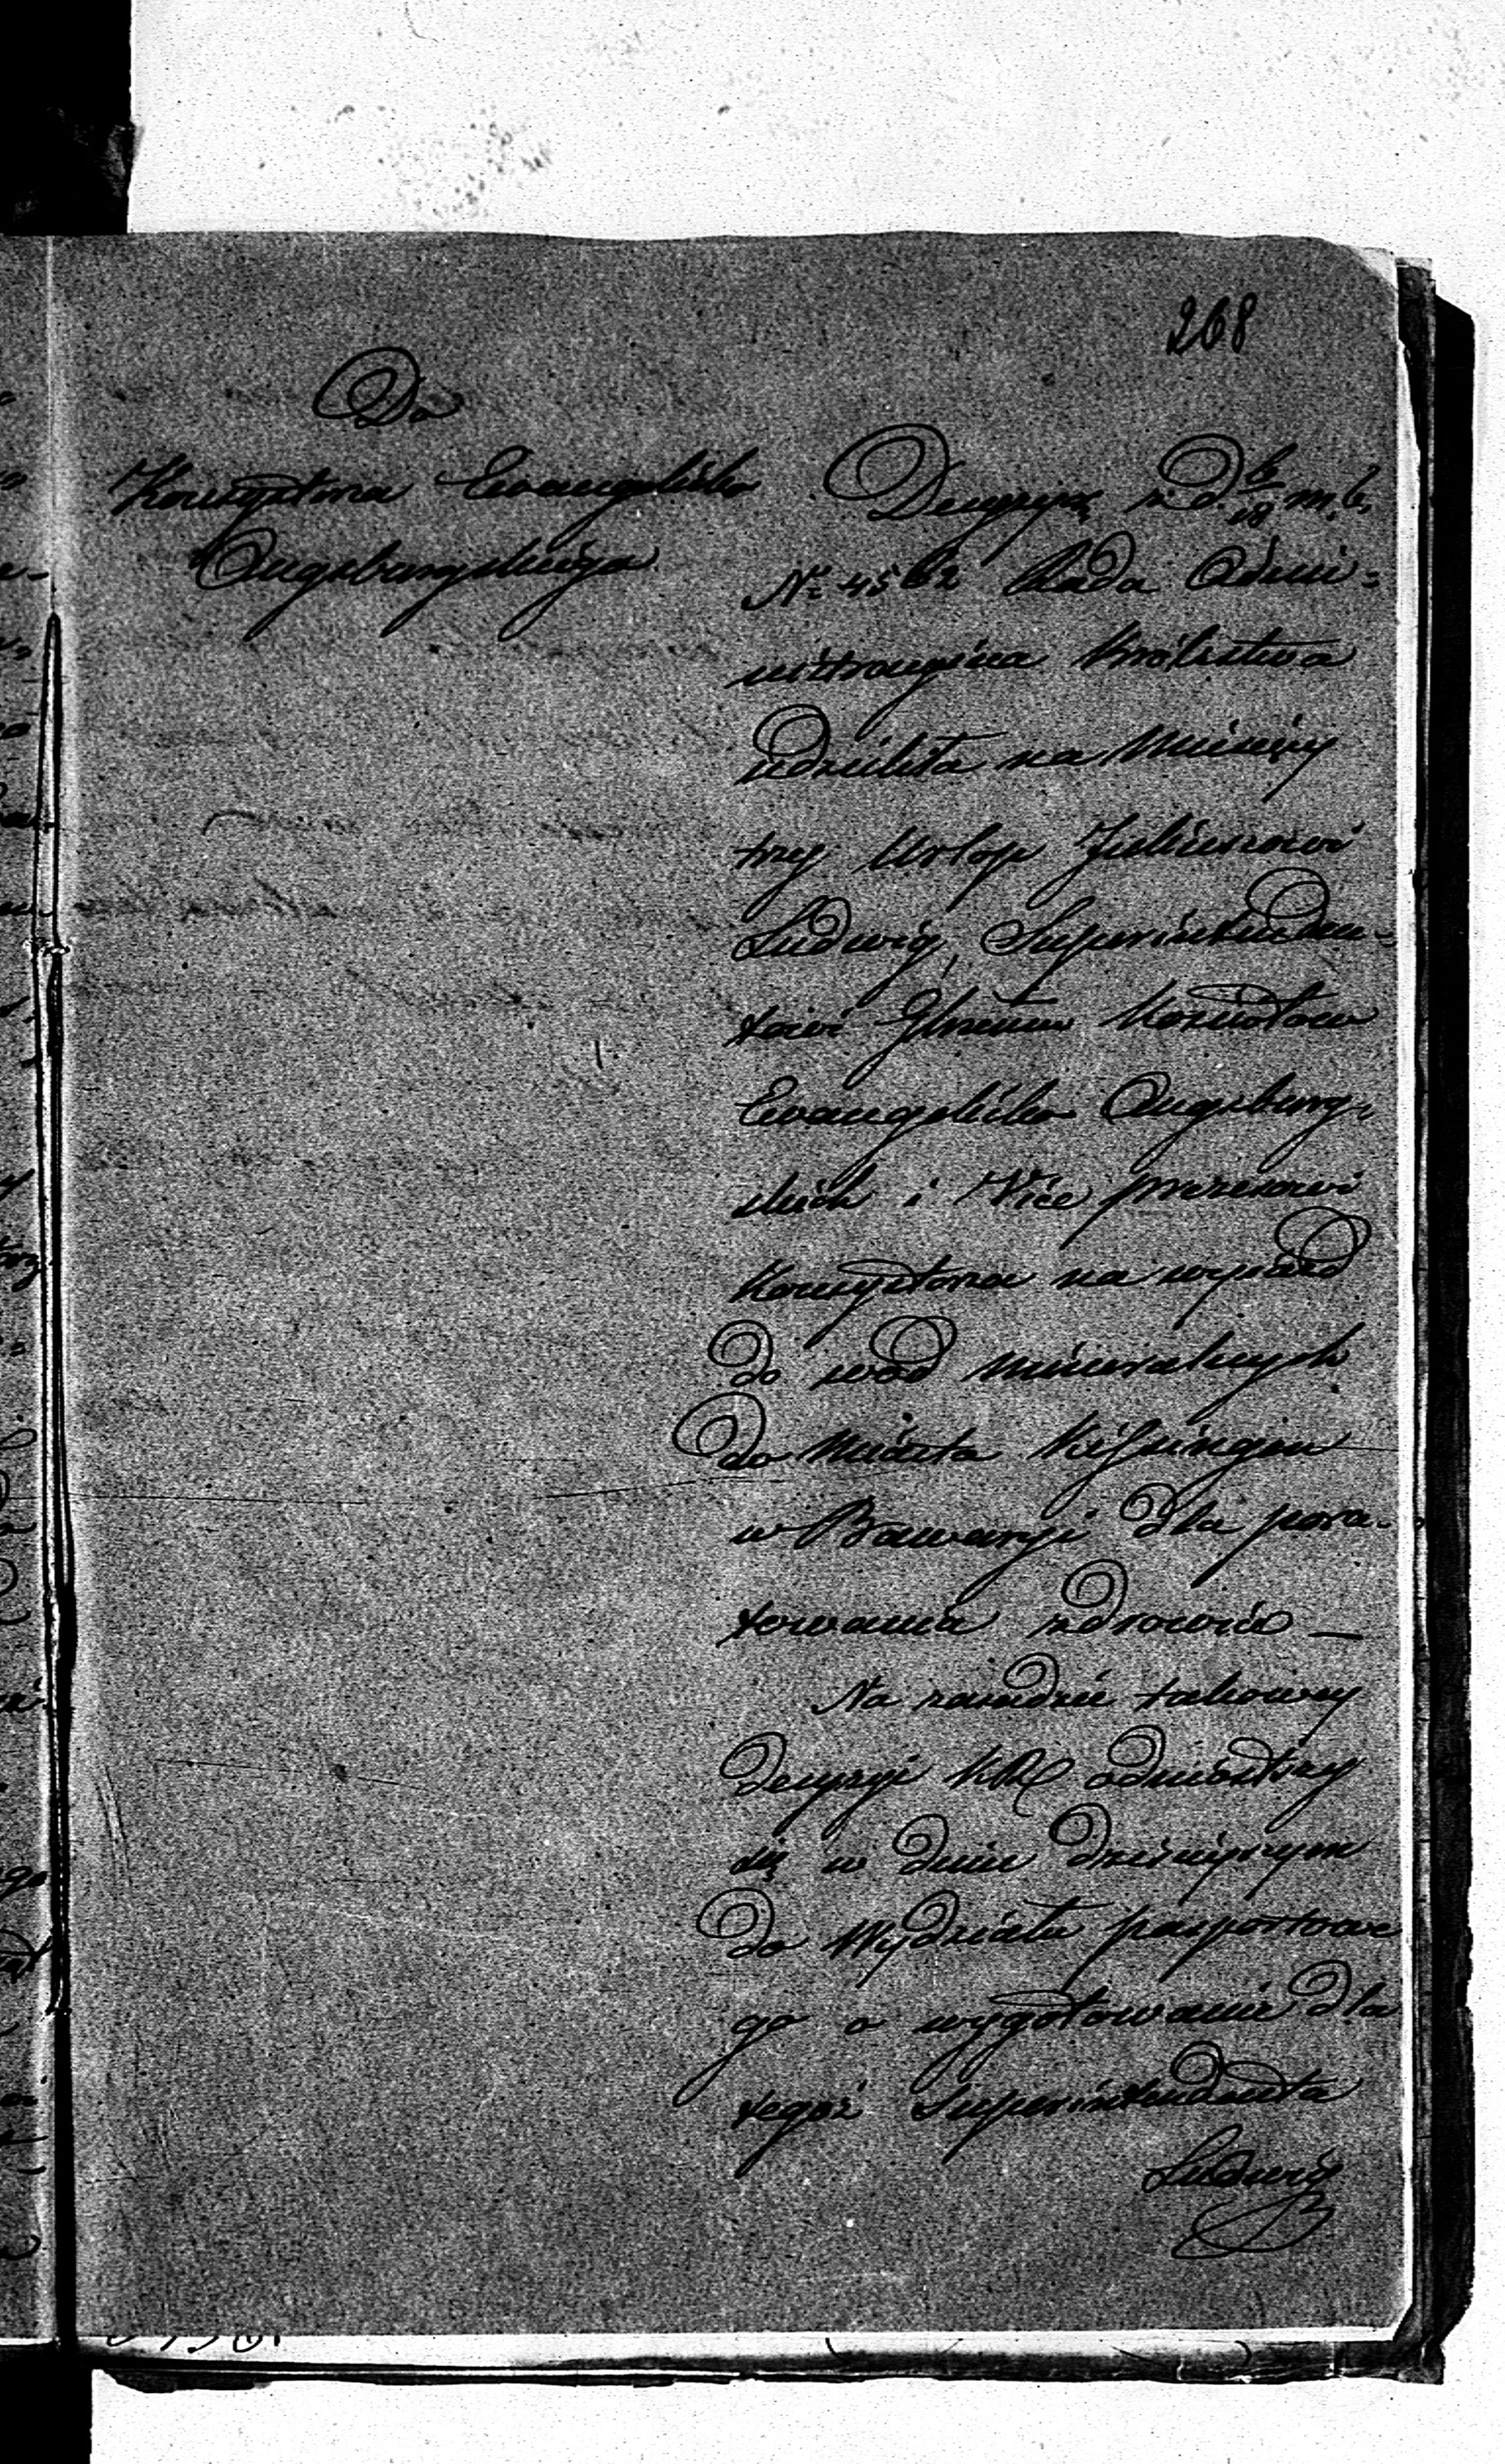 268
Do
Konsystorza Ewangelicko
Augsburgskiego
Decyzyą z d. 6/18 m. b.
Nr 4562 Rada Admi-
nistracyjna Królestwa
udzieliła na Miesięcy
trzy Urlop Juliuszowi
Ludwig, Superintenden-
towi Głnemu Kościołów
Ewangelicko Augsburg-
skich i Vice prezesowi
Konsystorza na wyjazd
do wód mineralnych
do Miasta Kissingen
w Bawaryi dla pora-
towania zdrowia —
Na zasadzie takowej
decyzyi KR odniosłszy
się w dniu dzisiejszym
do Wydziału pasportowe
go o wygotowanie dla
tegoż Superintendenta
Ludwig